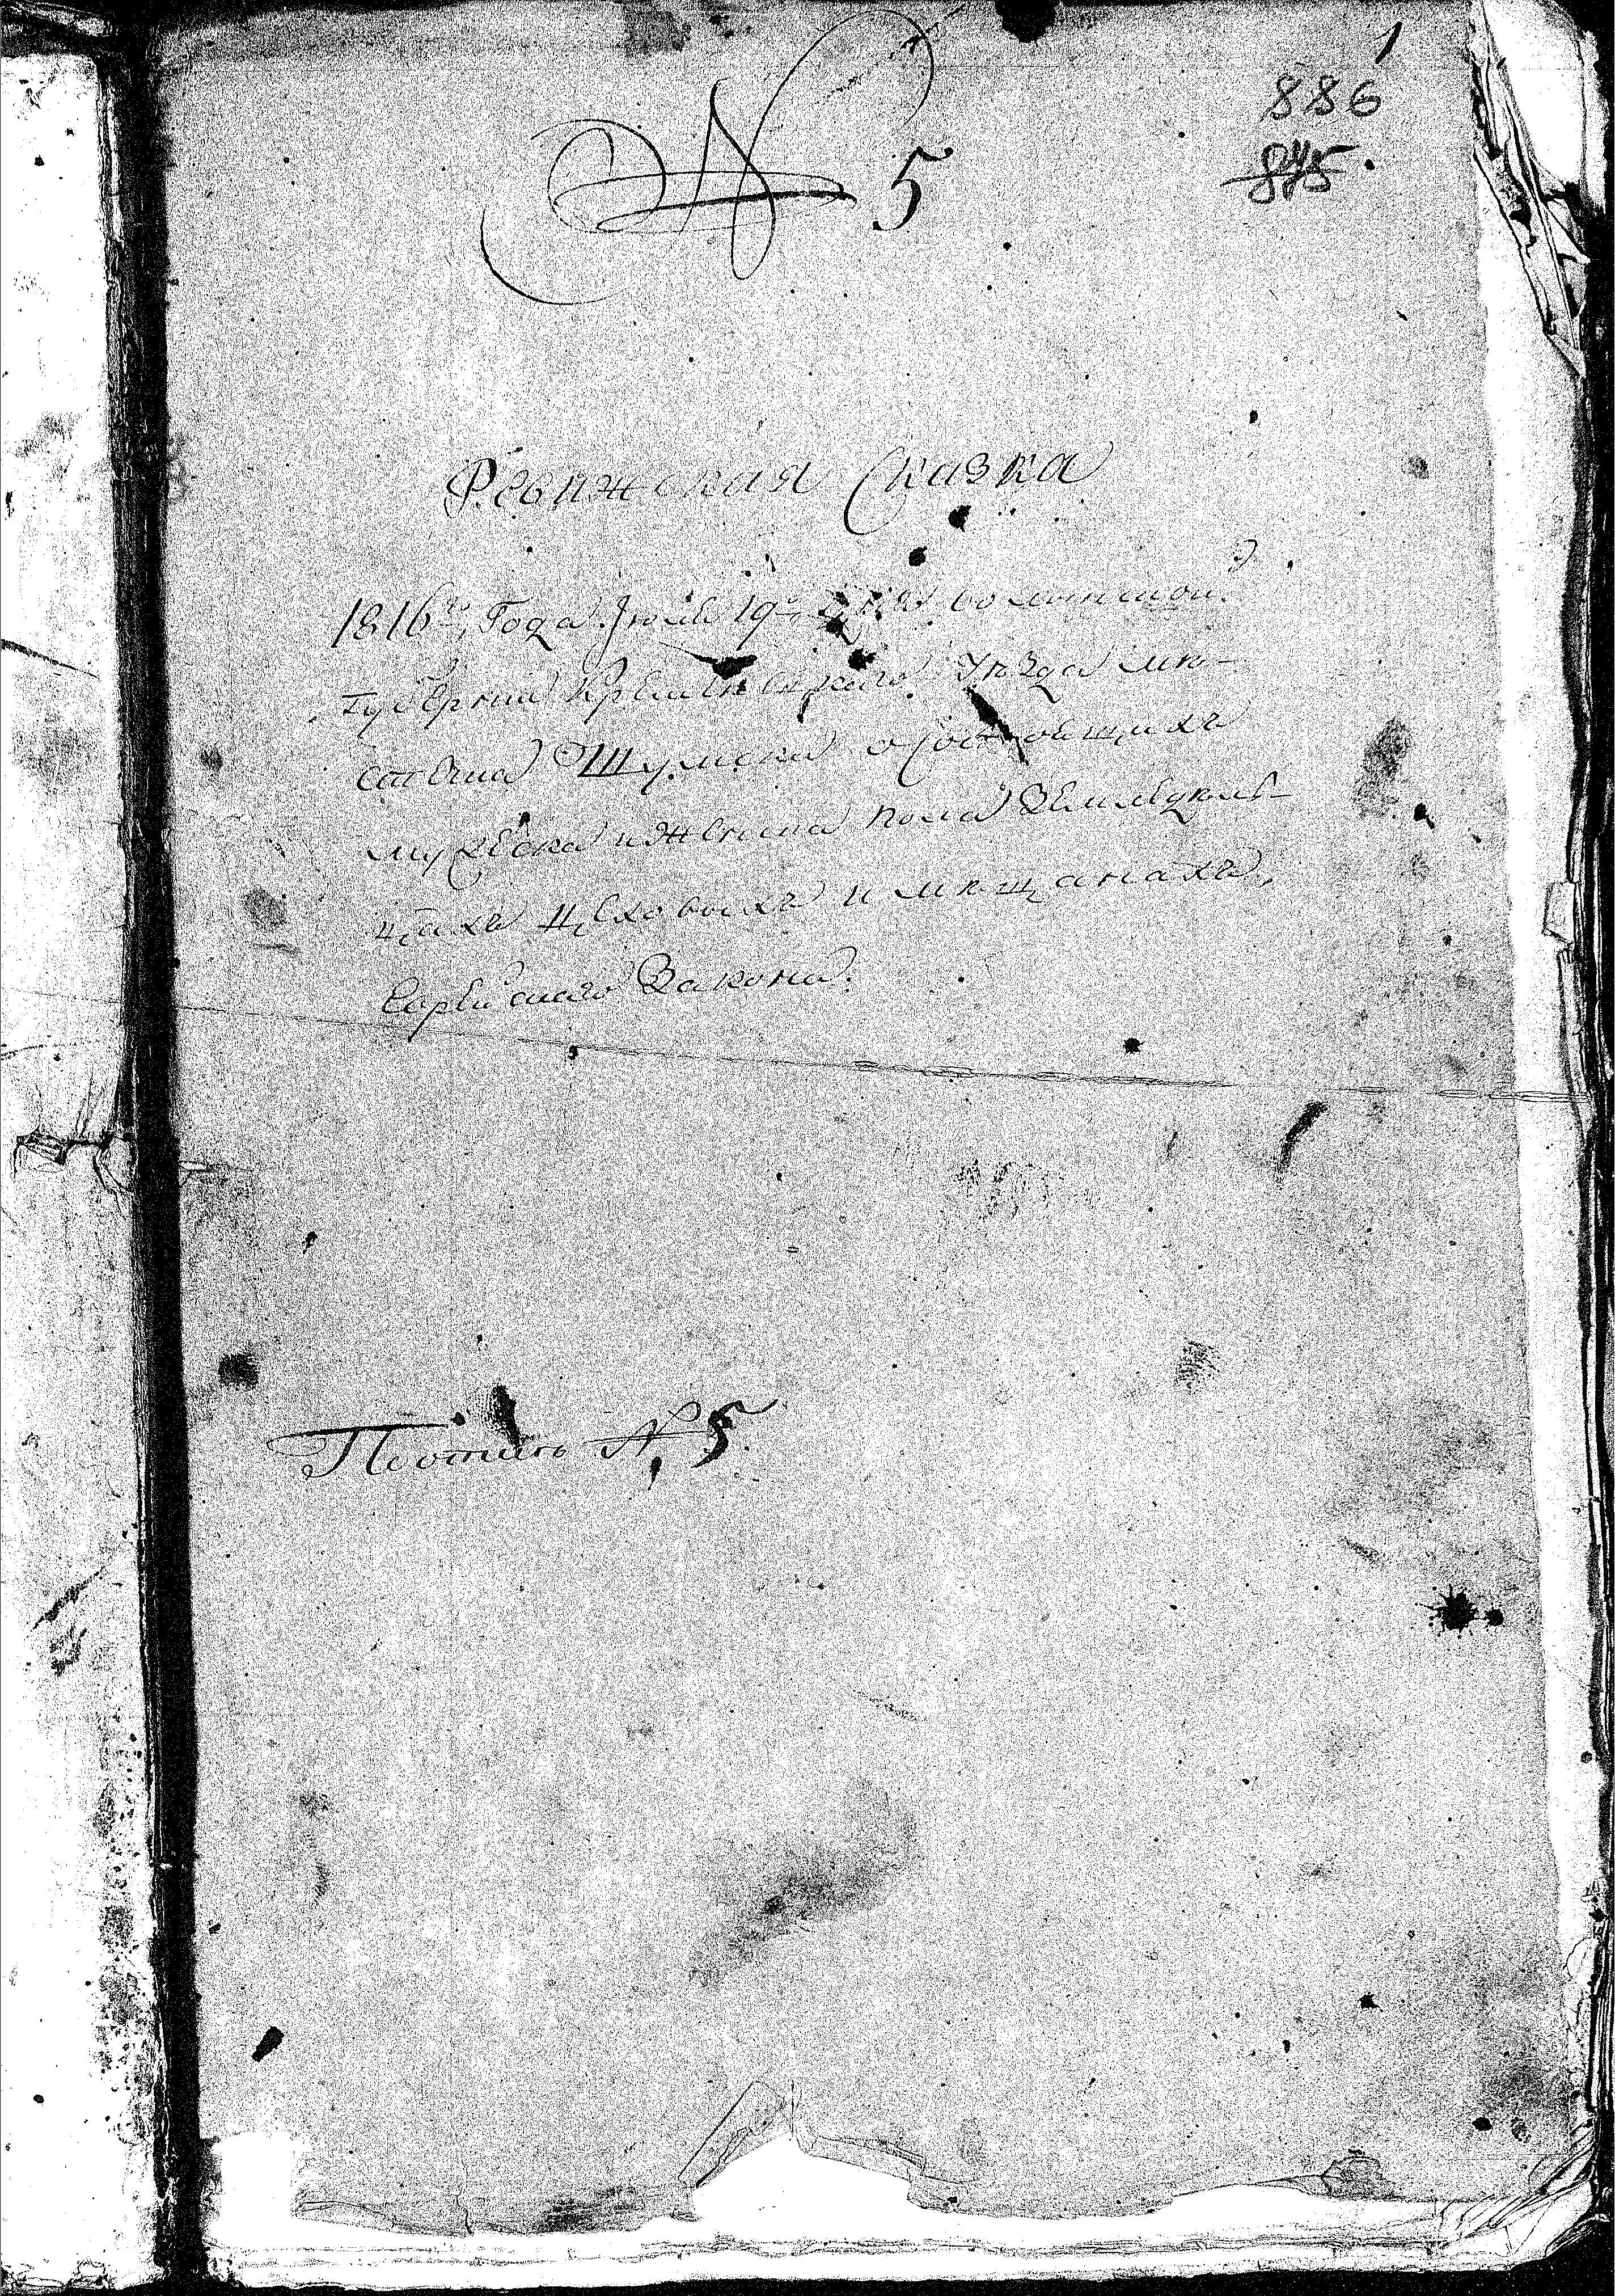 1
886
845
N 5
Ревижская Сказка
1816го Года Июля 19го Дня волынской
Губернии Кременецкаго Уѣзда мѣ-
стечка Шумска о состоящихъ
мужеска и женска пола Земледѣль-
цахъ цеховыхъ и мѣщанахъ,
Еврейскаго Закона.
N 5